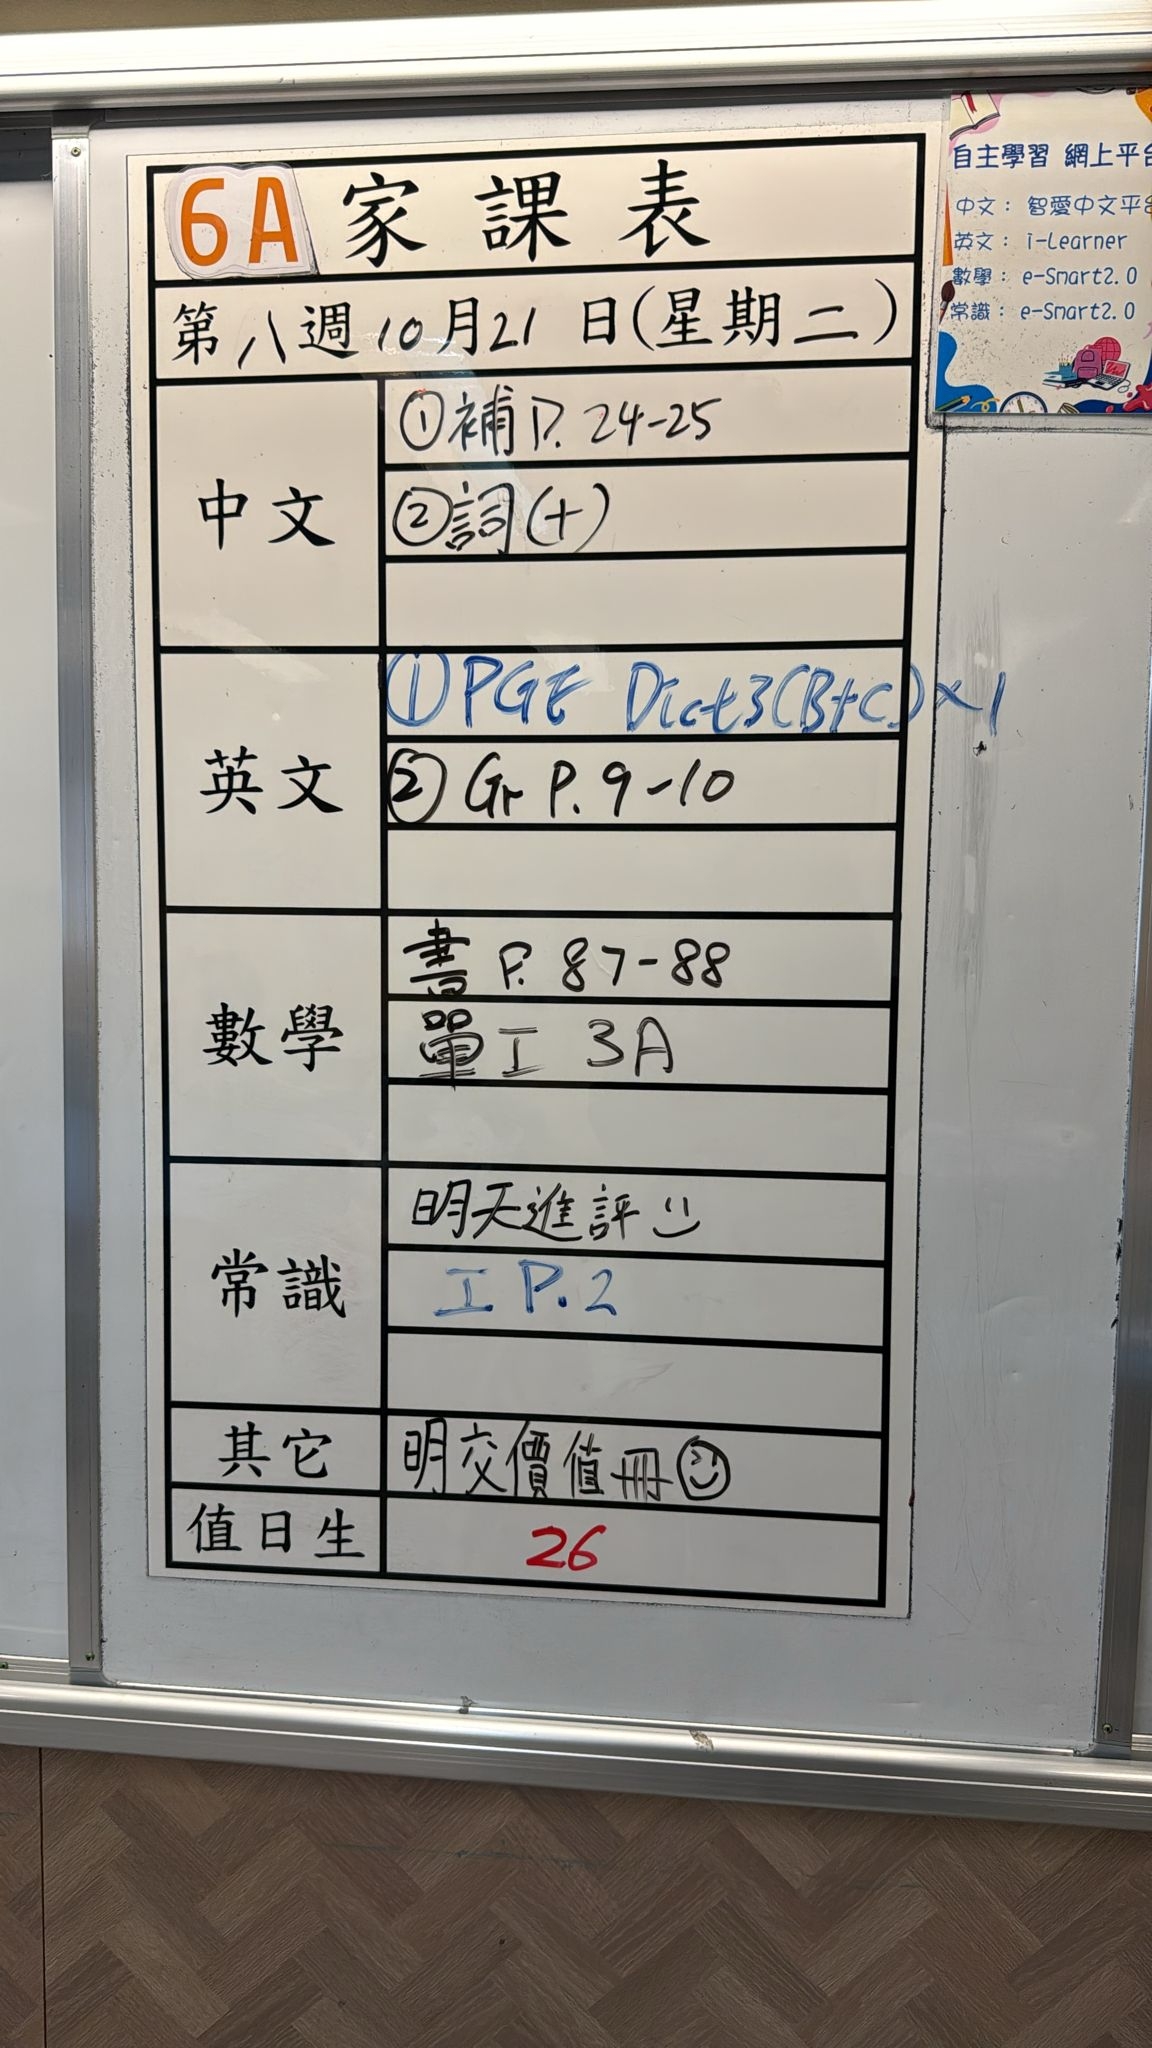 6A 家課表
第八週10月21日(星期二)
中文
①補P.24-25
②詞(十)
英文
①PGE Dict3(B+C)×1
②Gr P.9-10
數學
書 P.87-88
單工 3A
常識
明天進評
工 P.2
其它
明交價值冊
值日生
26
自主學習 網上平台
中文：智愛中文平台
英文：i-Learner
數學：e-Smart2.0
常識：e-Smart2.0